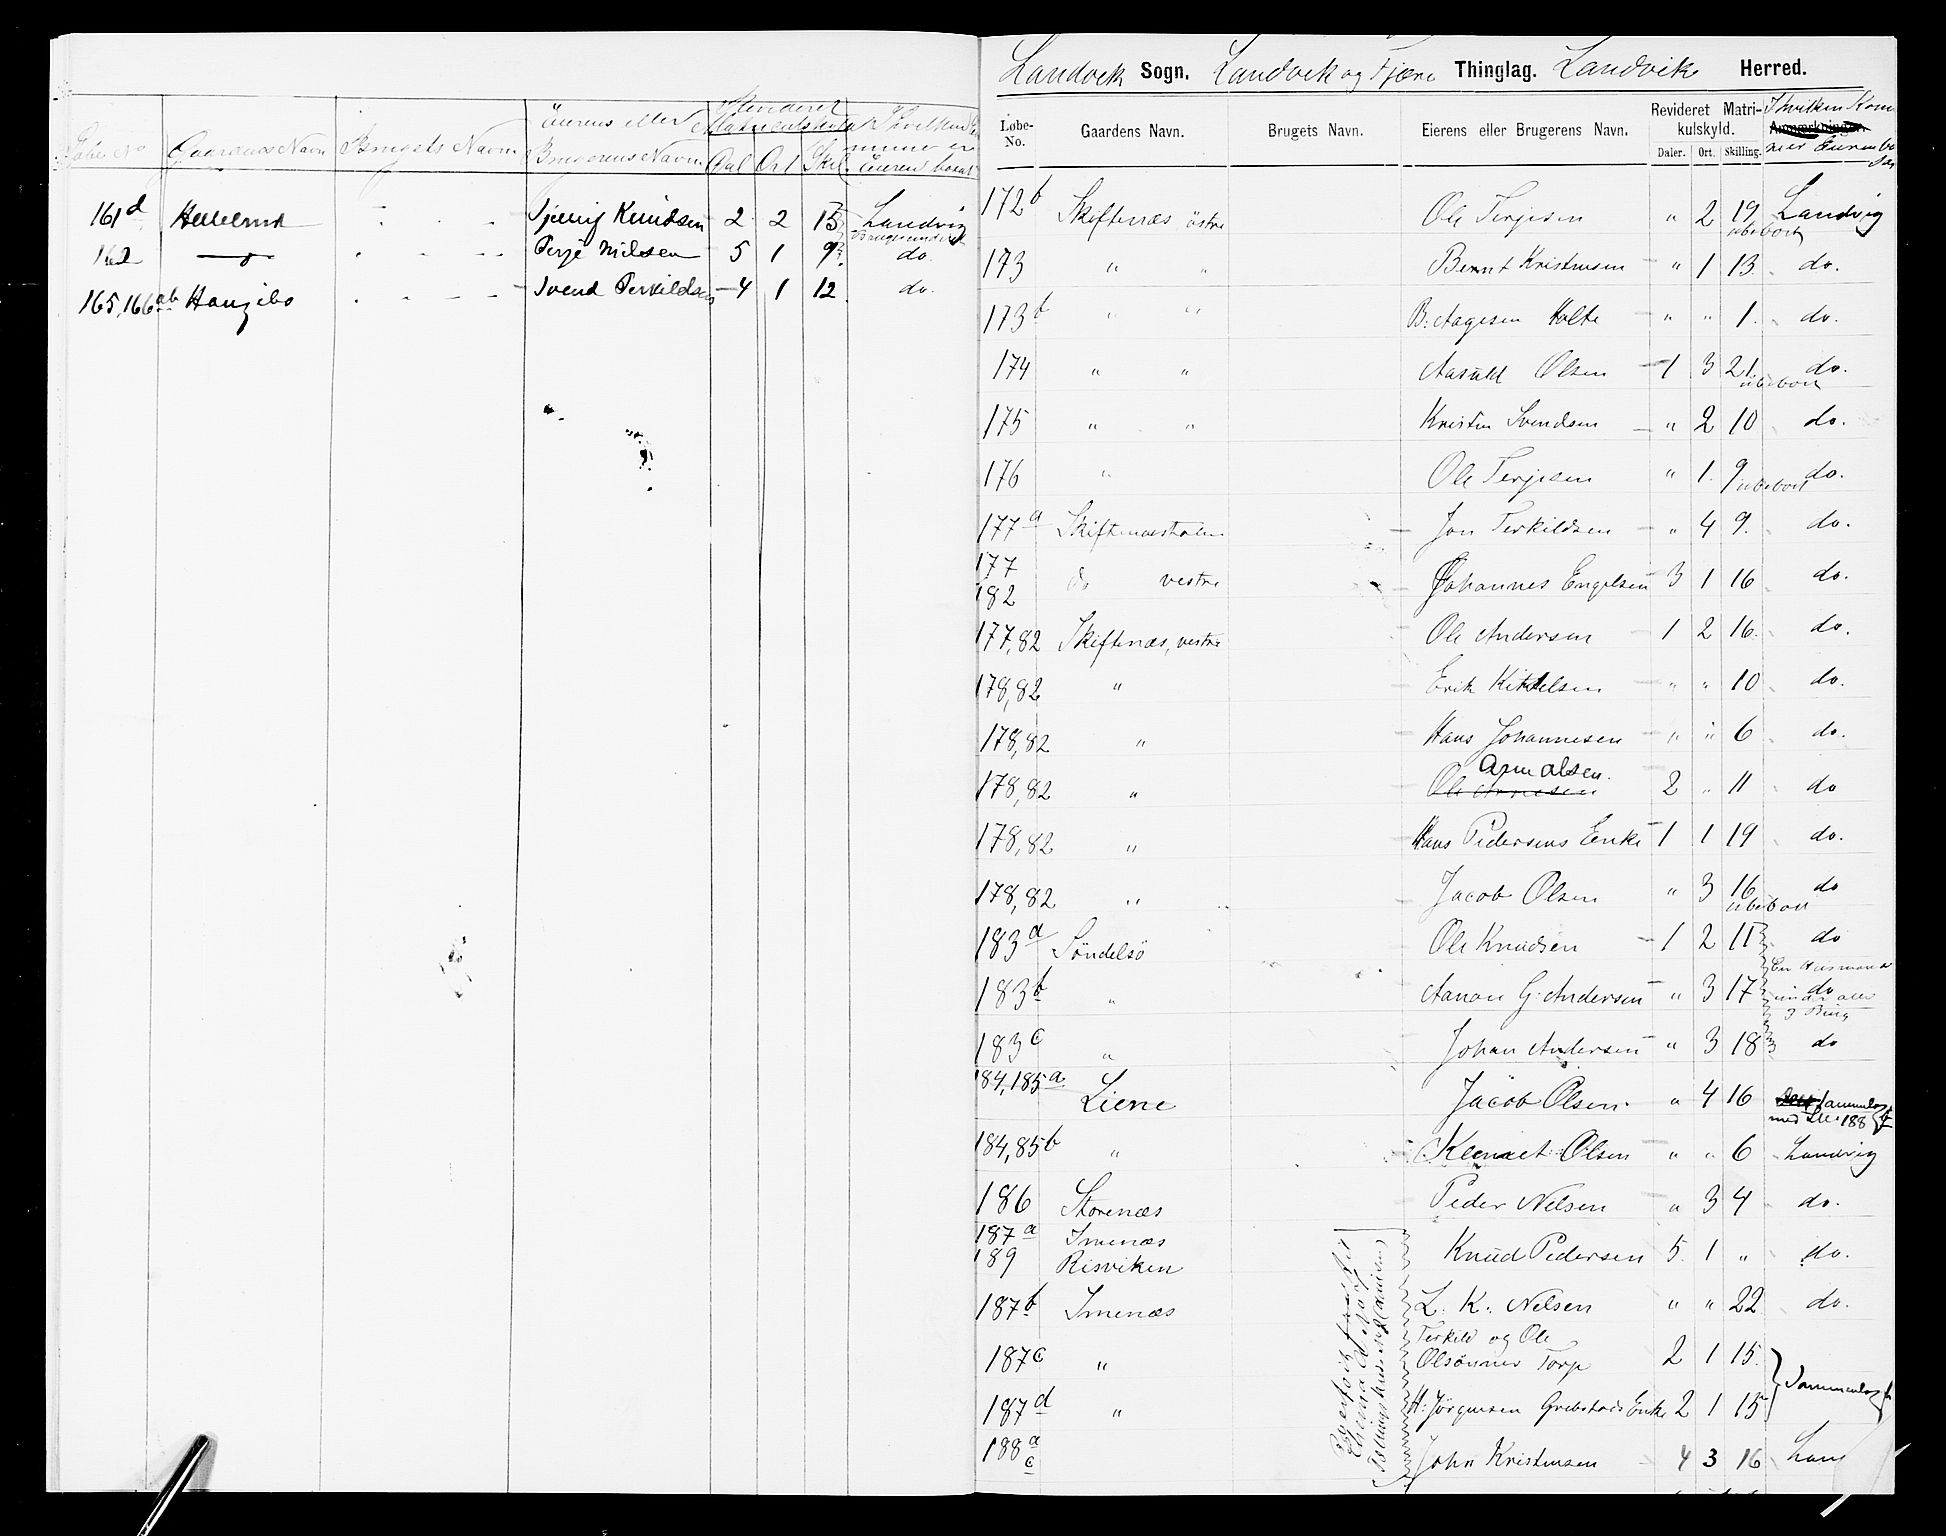 Løbe No Gaardens Navn Brugets Navn Eierens eller Brugerens Navn Revideret Matrikulskyld Dal Ort Skil. I hvilken Kommune er Eieren bosat
161d Hellerud - - - Tjerulf Knudsen 2 2 15 Landvig
162 — do — - - - Terje Nielsen 5 1 9 do.
165,166ab Haugebo - - - Svend Terkildsen 4 1 12 do.
Landvik Sogn. Landvik og Fjære Thinglag. Landviks Herred.
Løbe-No. Gaardens Navn. Brugets Navn. Eierens eller Brugerens Navn. Revideret Matrikulskyld. Daler. Ort. Skilling. Anmærkninger. I hvilken Kommune er Eieren bosat
172b Skiftenæs östre Ole Terjesen " 2 19 Landvig
ubebort
173 " " Bernt Kristensen " 1 13 do.
173b " " B: Aagesen Holte " " 1. do.
174 " " Aasuld Olsen 1 3 21. do.
ubebort
175 " " Kristen Svendsen " 2 10 do.
176 " Ole Terjesen " 1. 9 do.
ubebort
177a Skiftenæsholm Jon Terkildsen " 4 9. do.
177
182 do vestre Johannes Engelsen 3 1 16 do.
177,82 Skiftenæs, vestre Ole Andersen 1 2 16. do.
178,82 " Erik Kittelsen " " 10 do.
178,82 " Hans Johannesen " " 6 do.
Arne Olsen.
178,82 " Ole Arnesen 2 " 11 do
178,82 " Hans Pedersens Enke 1 1 19 do.
178,82 " Jacob Olsen " 3 16 do
ubebort
183a Söndelsö Ole Knudsen 1 2 11 do
En Husmand
183b " Aanon G: Andersen " 3 17 do
under alle
3 Brug
183c " Johan Andersen " 3 18 do
184,185a Liene Jacob Olsen " 4 16 sammenlag
med LNr 188b
184,85b " Klemet Olsen " " 6 Landvig
186 Storenæs Peder Nelsen " 3 4 do.
187a Imenæs
189 Risviken Knud Pedersen 5. 1 " do.
187b Imenæs L. K. Nelsen " " 22 do.
Terkild og Ole
187c " Olsönner Torp 2 1 15.
187d " H: Jörgensen Grebstads Enke 2 1 15 Sammenlag
188a
c John Kristensen 4 3 16 Lan